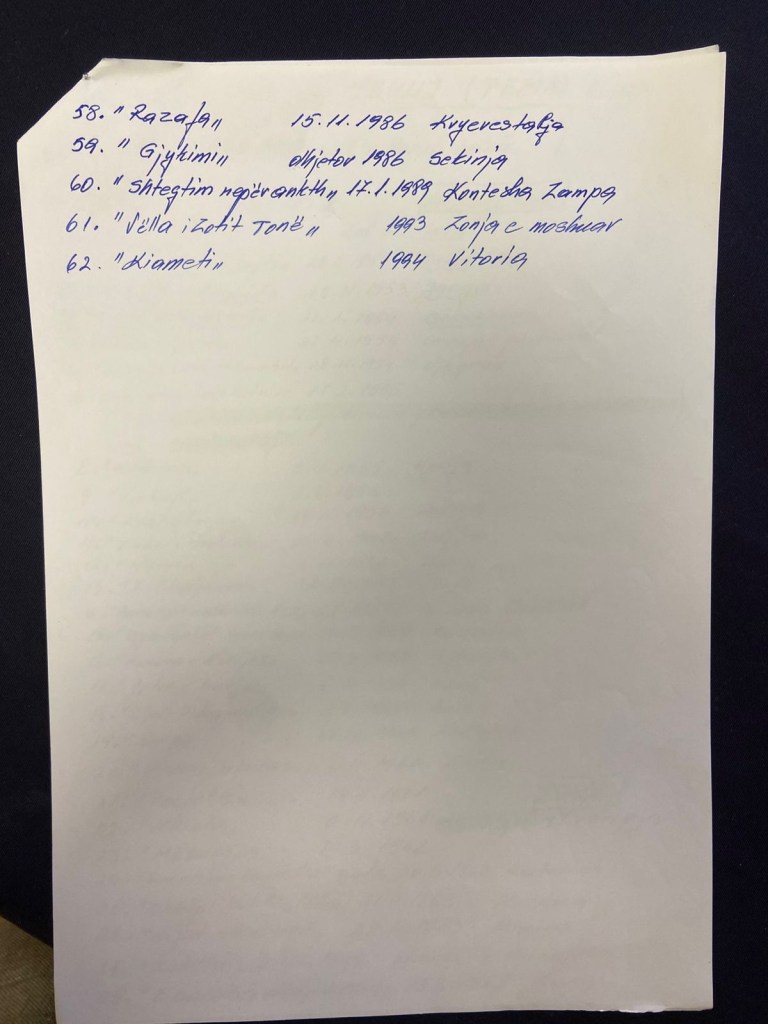 58. " Razafa„ 15.11.1986 Kryevestalja
59. " Gjykimi„ dhjetor 1986 Sekinja
60. " Shtegtim nëpër ankth„ 17.1.1989 Konteska Zampa
61. "Vëlla i Zotit Tonë„ 1993 Zonja e moshuar
62. "Kiameti„ 1994 Vitoria